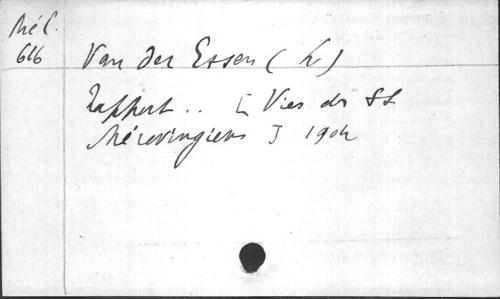 Mél.
616
Van der Essen (L)
Rapport .. [ Vies des SS
Mérovingiens ] 1904